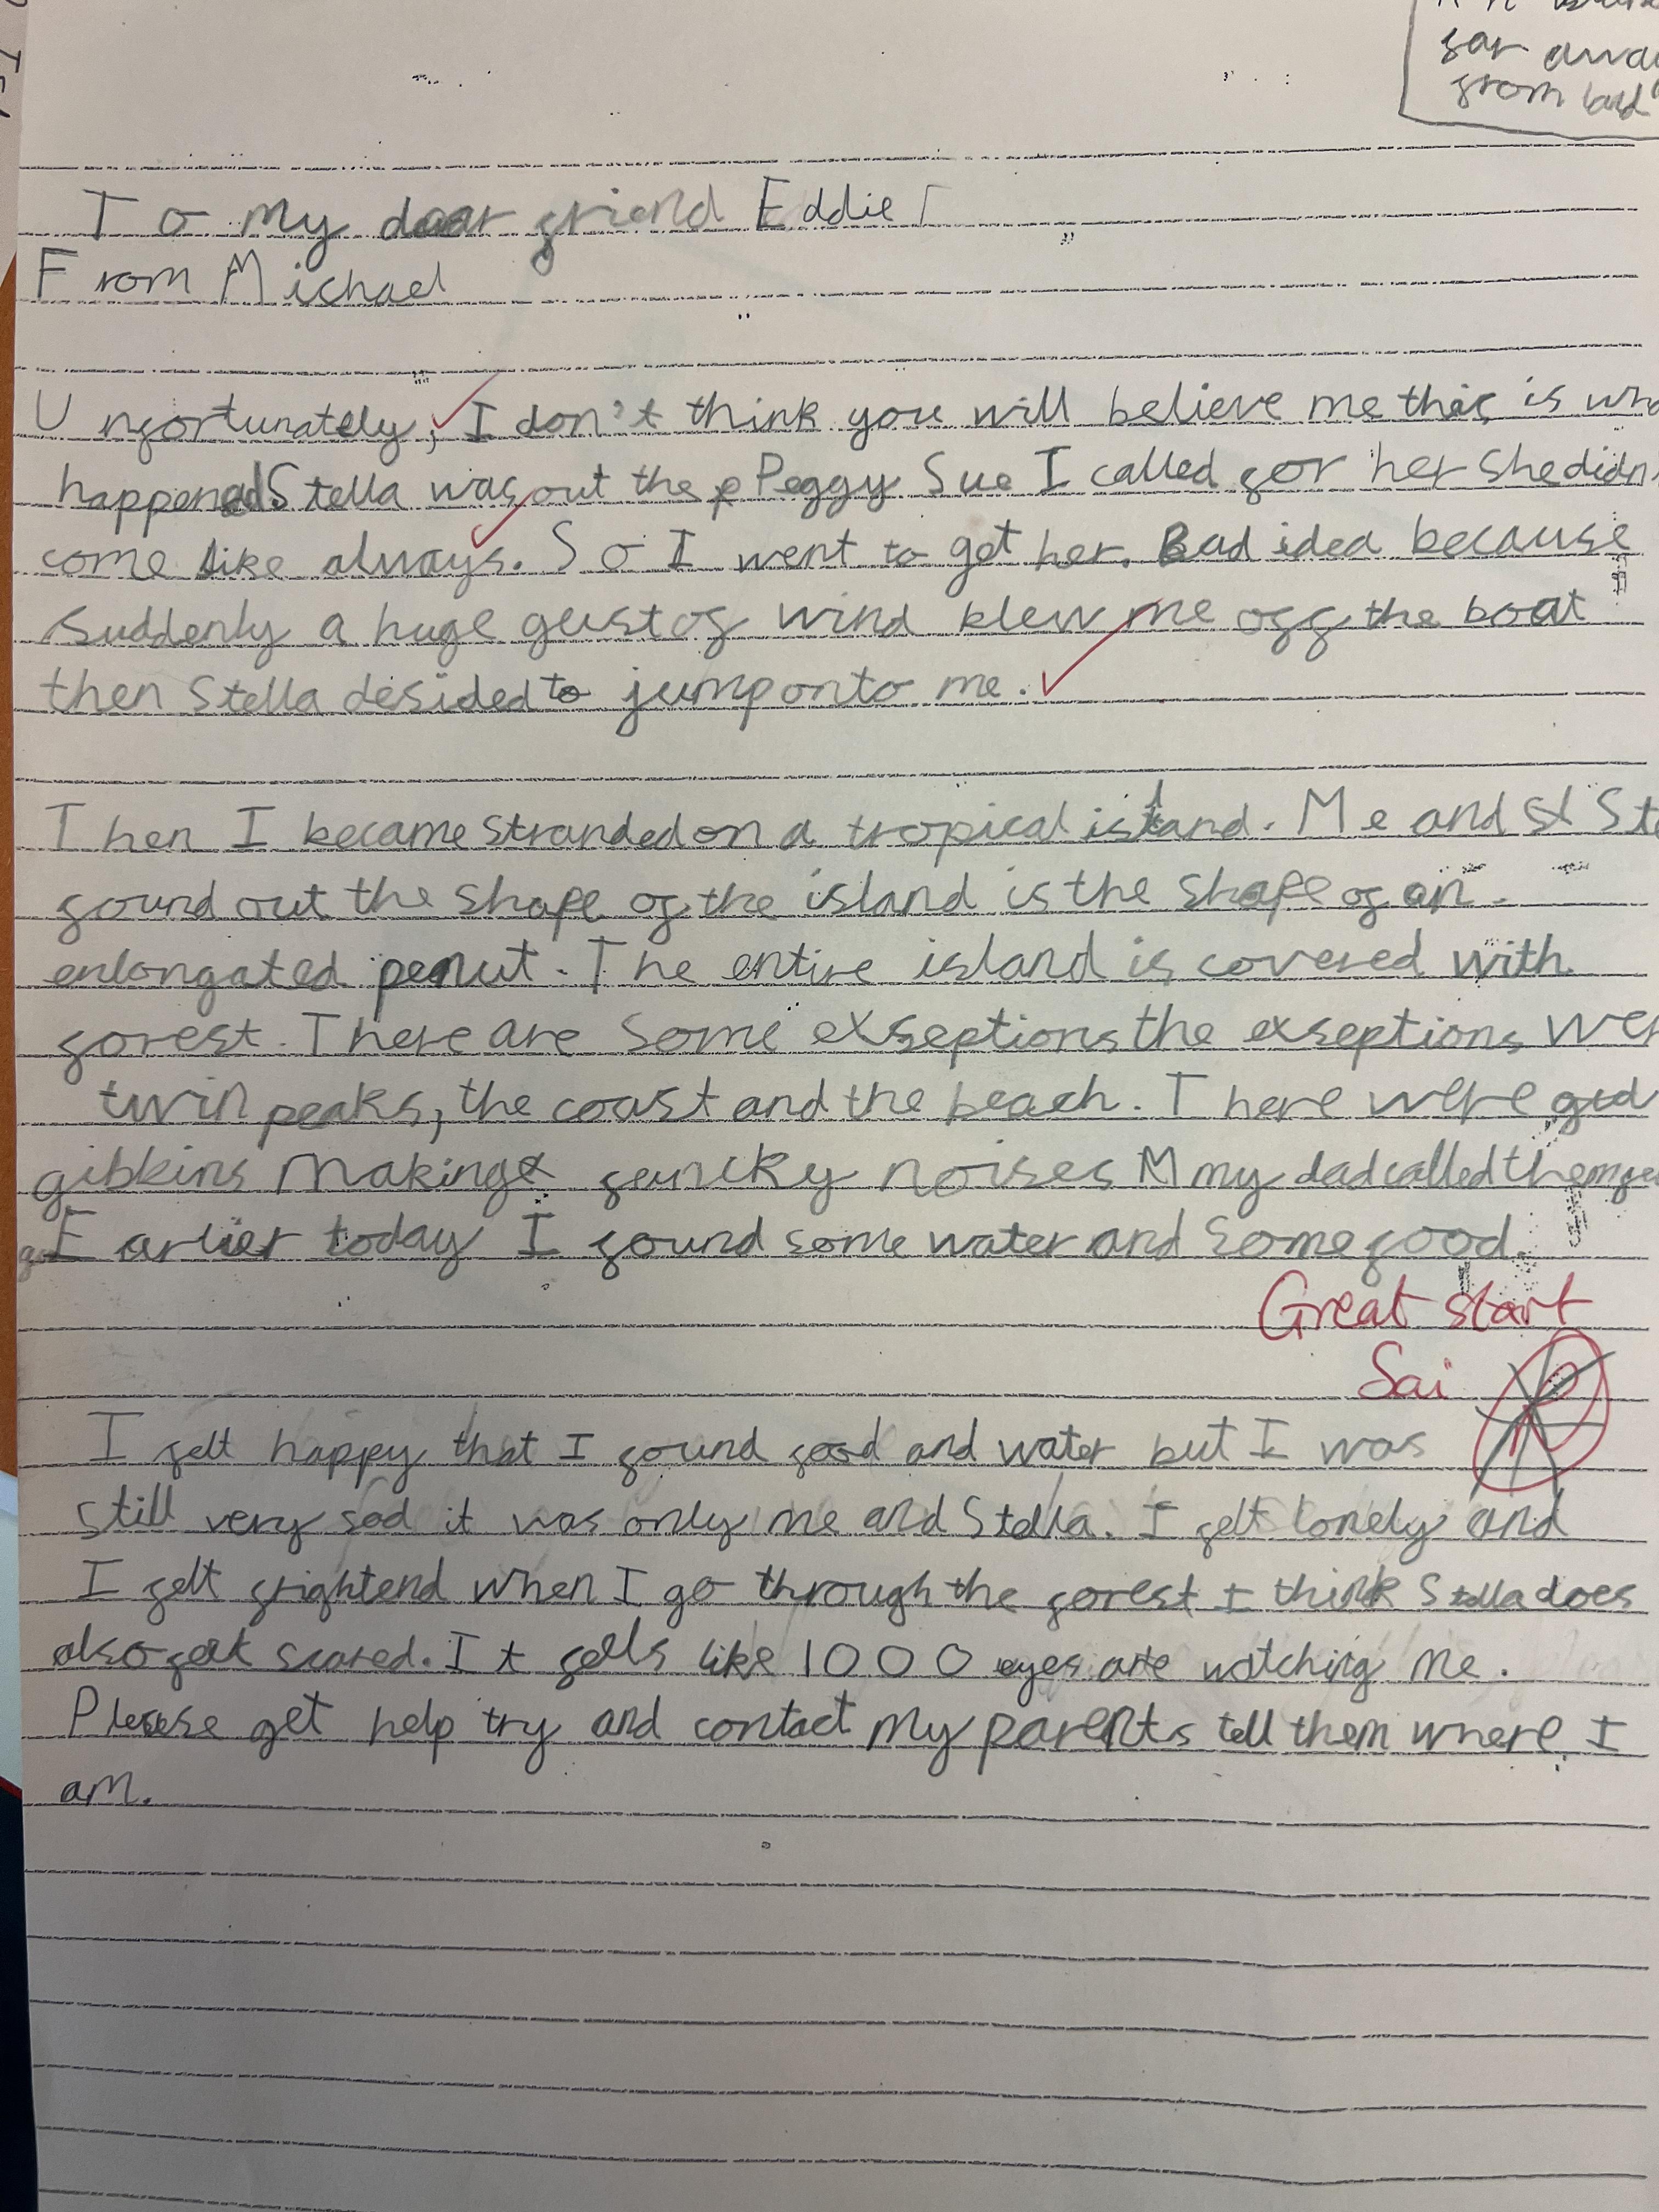 far away
from land
To my dear friend Eddie
From Michael
Unfortunately, I don't think you will believe me this is
happened Stella was out the Peggy Sue I called for her she didn
come like always. So I went to get her. Bad idea because
suddenly a huge gust of wind blew me off the boat
then Stella desided to jump onto me.
Then I became stranded on a tropical island. Me and
found out the shape of the island is the shape of an
enlongated penut. The entire island is covered with
forest. There are some exseptions the exseptions
twin peaks, the coast and the beach. There were
gibbins making funcky noises my dad called them
Earlier today I found some water and some food.
Great start
Sai
I felt happy that I found food and water but I was
still very sad it was only me and Stella. I felt lonely and
I felt frightend when I go through the forest I think Stella does
also scared. It fells like 1000 eyes are watching me.
Please get help try and contact my parents tell them where I
am.